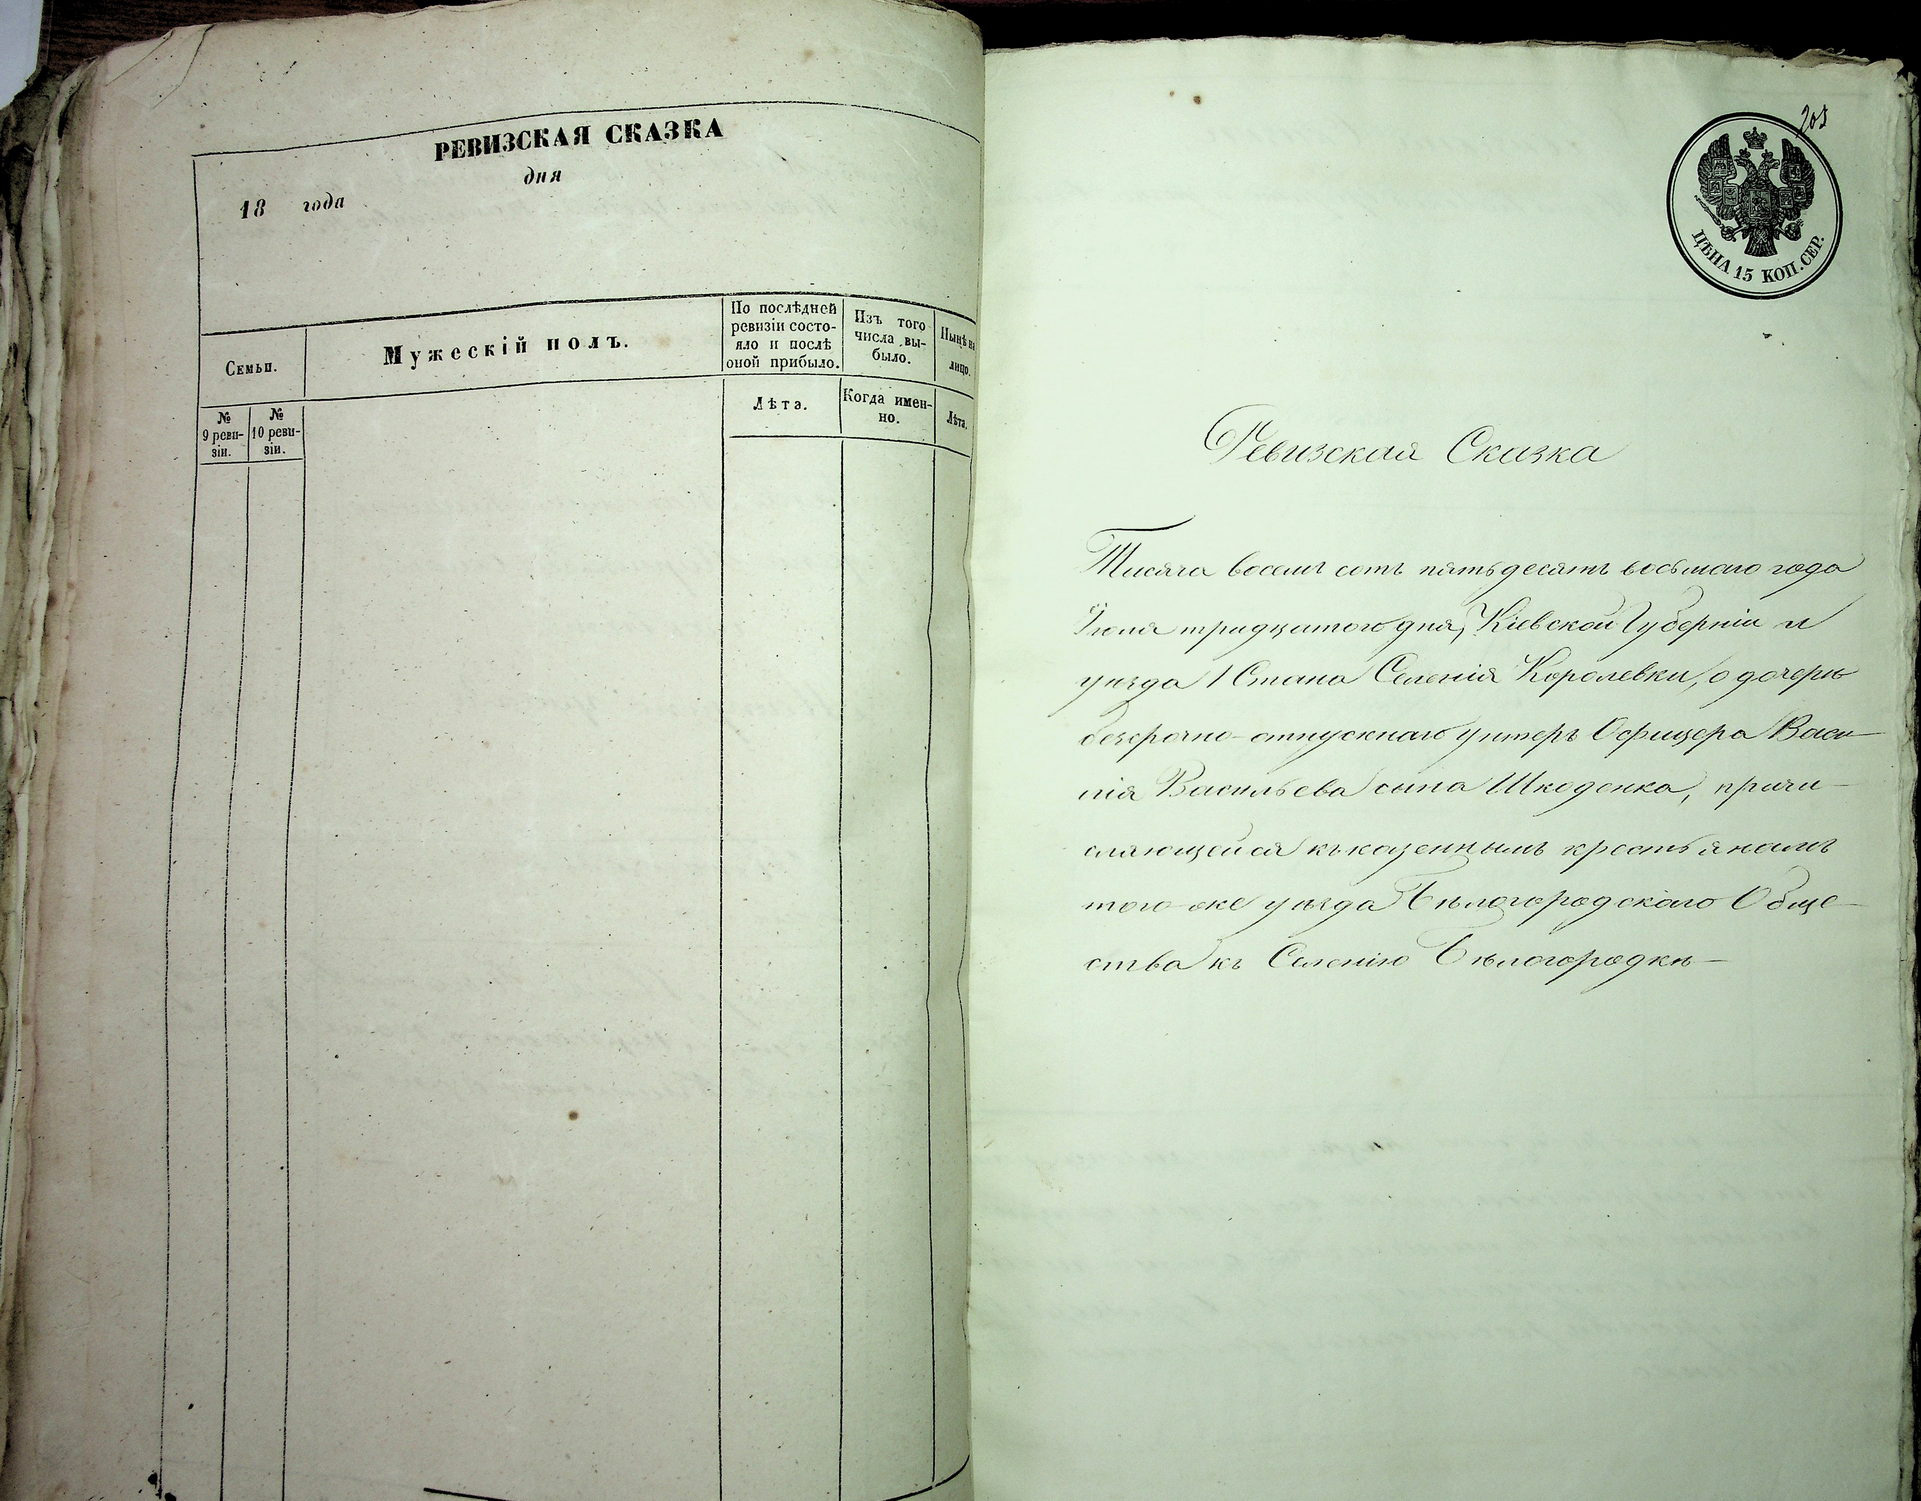 РЕВИЗСКАЯ СКАЗКА
дня
18 года
Семьи.
Мужескій полъ.
По послѣдней
ревизіи состо-
яло и послѣ
оной прибыло.
Изъ того
числа вы-
было.
Нынѣ на
лицо.
№
9 реви-
зіи.
№
10 реви-
зіи.
Лѣта.
Когда имен-
но.
Лѣта.
205
ЦѢНА 15 КОП. СЕР.
Ревизская Сказка
Тисяча восемь сотъ пятьдесятъ восьмаго года
Іюня тридцатого дня, Кіевской Губерніи и
уѣзда 1 Стана Селенія Королевки, о дочерѣ
безсрочно-отпускнаго унтеръ Офицера Васи-
лія Васильева сына Шкоденка, причи-
сляющейся къ казеннымъ крестьянамъ
того-же уѣзда Бѣлогородскаго Обще-
ства къ Селенію Бѣлогородкѣ-